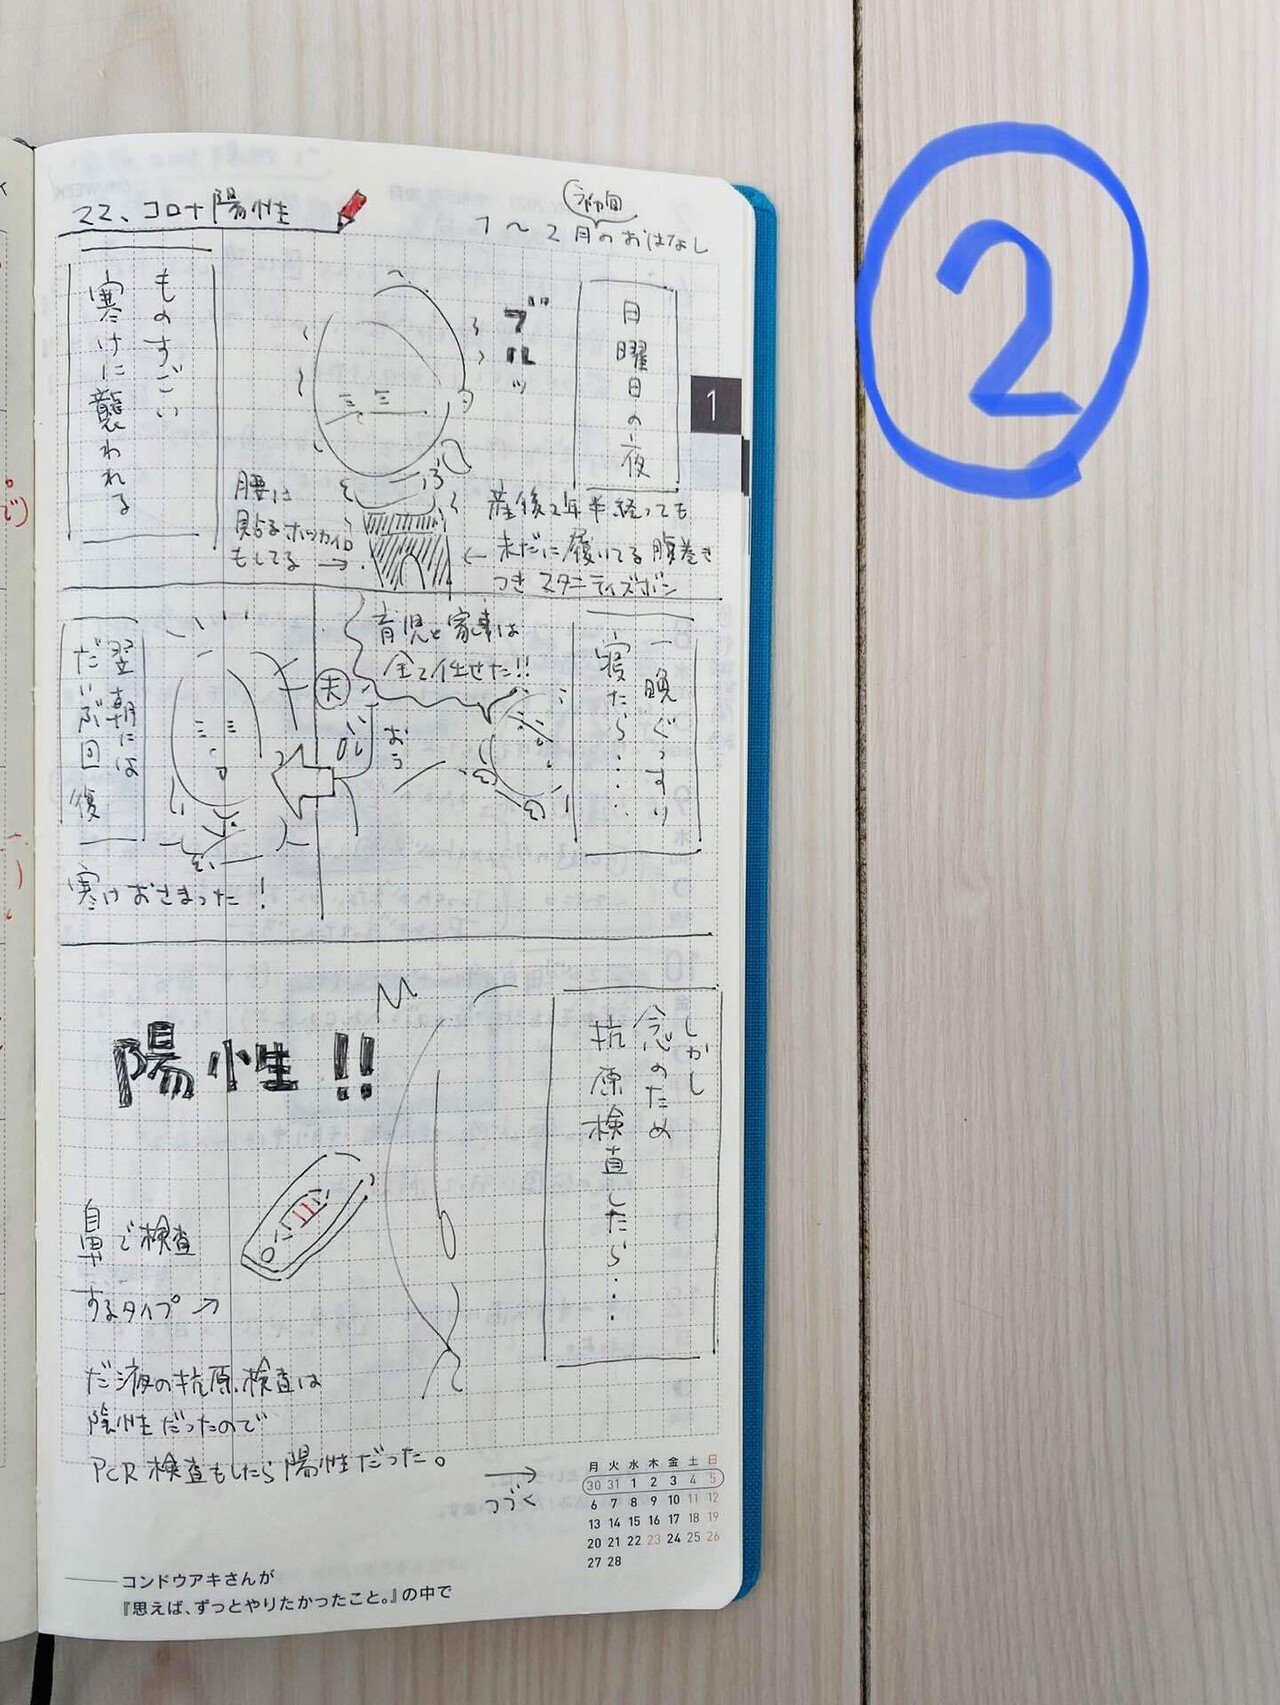 ②
22、コロナ陽性
1〜2月のおはなし
1
日曜日の夜
ブルッ
ものすごい
寒けに襲われる
腰に
貼るホッカイロ
もしてる →
産後2年半経っても
← 未だに履いてる腹巻き
つきマタニティズボン
一晩ぐっすり
寝たら・・・・
育児と家事は
全て任せた!!
おう
夫
翌朝には
だいぶ回復
寒けおさまった!
しかし
念のため
抗原検査したら・・・
陽性!!
鼻で検査
するタイプ→
だ液の抗原検査は
陰性だったので
PCR検査もしたら陽性だった。
→
つづく
月 火 水 木 金 土 日
30 31 1 2 3 4 5
6 7 8 9 10 11 12
13 14 15 16 17 18 19
20 21 22 23 24 25 26
27 28
コンドウアキさんが
『思えば、ずっとやりたかったこと。』の中で